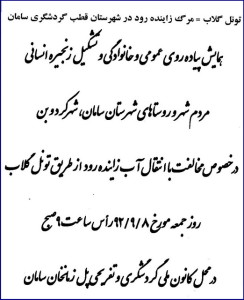 تونل گلاب = مرگ زاینده رود در شهرستان قطب گردشگری سامان
همایش پیاده روی عمومی و خانوادگی و تشکیل زنجیره انسانی
مردم شهر و روستاهای شهرستان سامان، شهرکرد و بن
در خصوص مخالفت با انتقال آب زاینده رود از طریق تونل گلاب
روز جمعه مورخ ۹۲/۹/۸ رأس ساعت ۹ صبح
در محل کانون ملی گردشگری و تفریحی پل زمانخان سامان